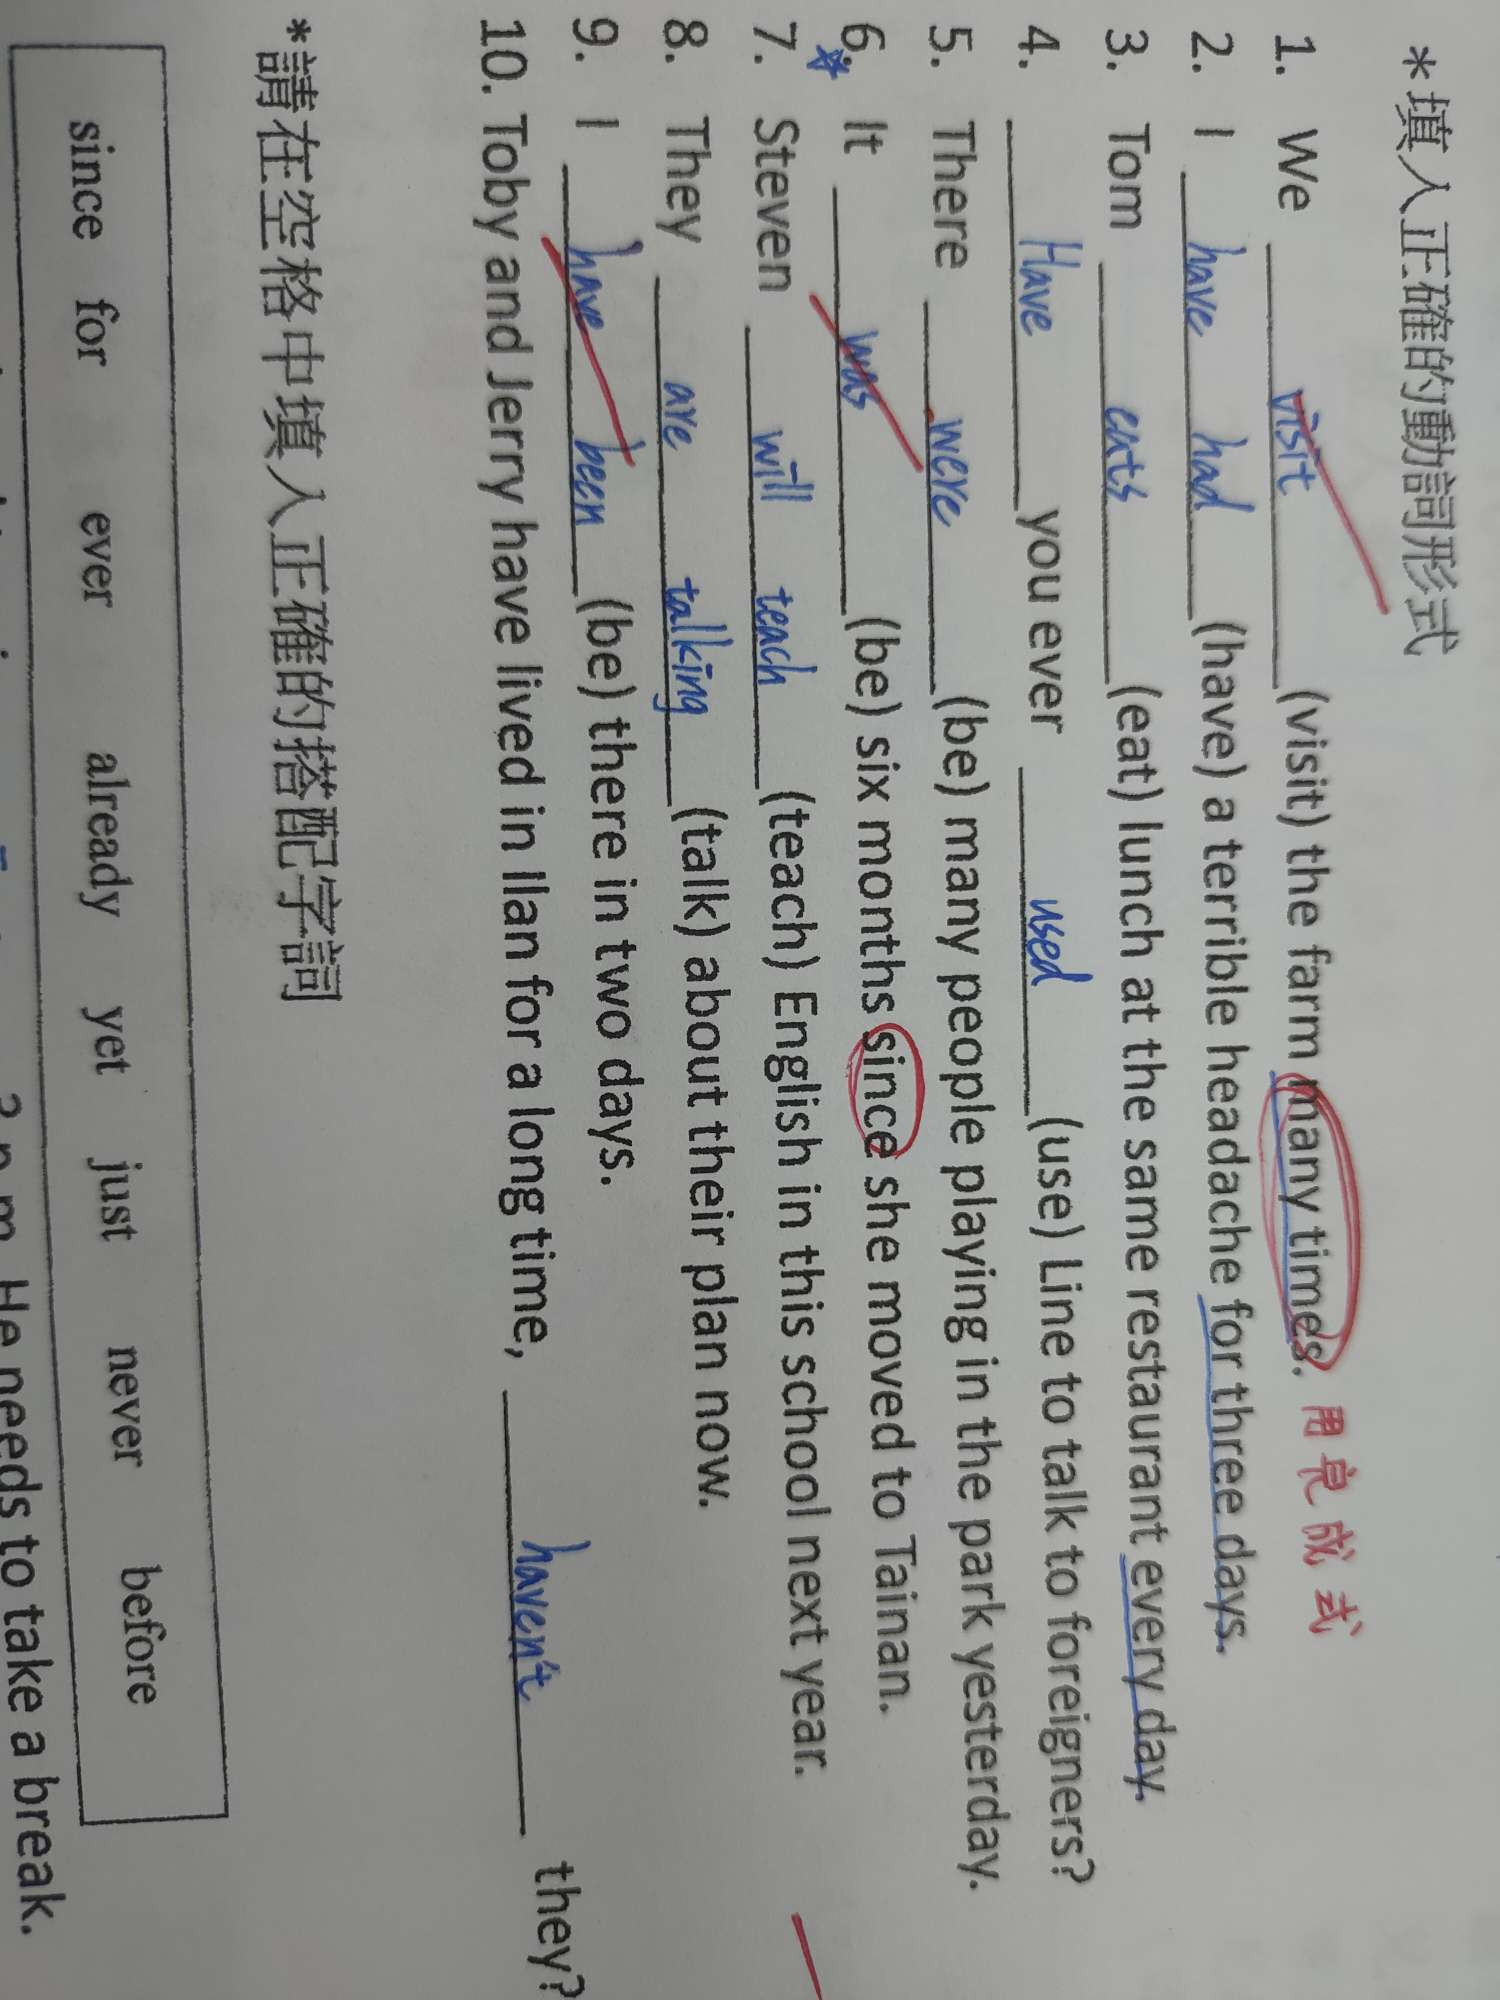 *填入正確的動詞形式
1. We visit (visit) the farm many times. 用完成式
2. I have had (have) a terrible headache for three days.
3. Tom eats (eat) lunch at the same restaurant every day.
4. Have you ever used (use) Line to talk to foreigners?
5. There were (be) many people playing in the park yesterday.
6. It was (be) six months since she moved to Tainan.
7. Steven will teach (teach) English in this school next year.
8. They are talking (talk) about their plan now.
9. I have been (be) there in two days.
10. Toby and Jerry have lived in Ilan for a long time, haven't they?
*請在空格中填入正確的搭配字詞
since for ever already yet just never before
He needs to take a break.